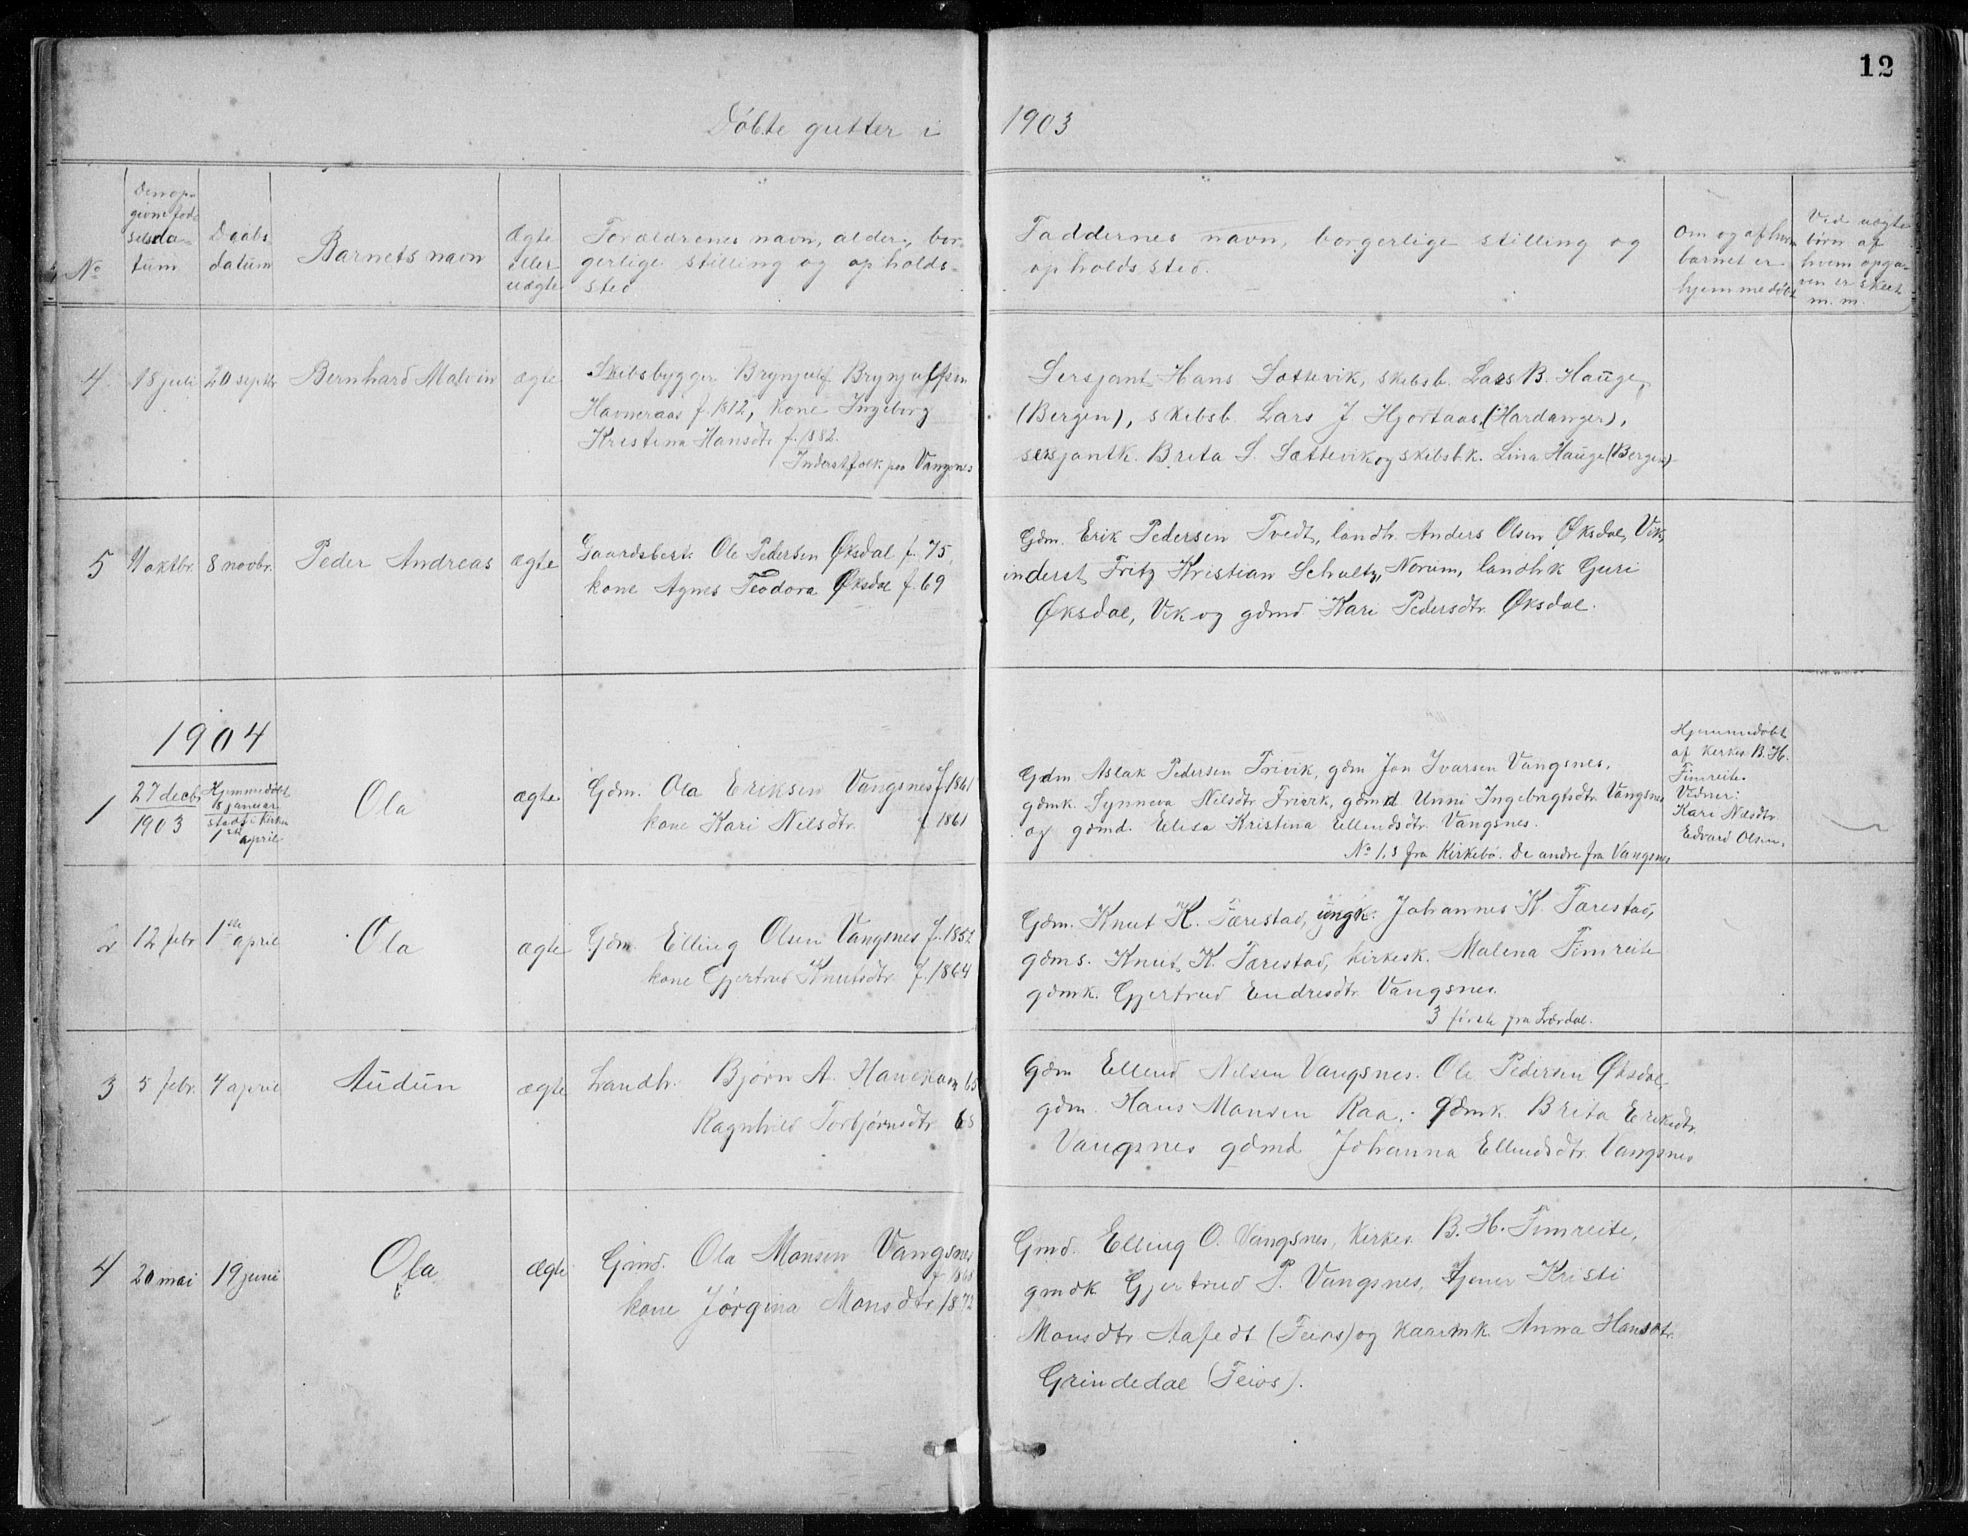 12
Døbte gutter i 1903
No
Den opgivne fødselsdatum
Daabsdatum
Barnets navn
Ægte eller uægte
Forældrenes navn, alder, borgerlige stilling og opholdssted
Faddernes navn, borgerlige stilling og opholdssted.
Om og af hvem barnet er hjemmedøbt
Ved uægte børn af hvem opgaven er skeet m. m.
4 18 juli 20 septbr Bernhard Malvin ægte
Skibsbygger Brynjulf Brynjulfsen
Havneraas f. 1872, kone Ingeborg
Kristina Hansdtr f. 1882.
Inderstfolk paa Vangsnes
Sersjant Hans Sættevik, skibsb. Lars B. Hauge,
(Bergen), skibsb. Lars J Hjortaas (Hardanger),
sersjantk. Brita S. Sættevik og skibsbk. Lina Hauge (Bergen)
5 11 oktbr. 8 novbr. Peder Andreas ægte
Gaardsbest. Ole Pedersen Øksdal f. 75,
kone Agnes Teodora Øksdal f. 69
Gdm. Erik Pedersen Tvedt, landh. Anders Olsen Øksdal, Vik,
inderst Fritz Kristian Schultz, Norum, landhk Guri
Øksdal, Vik og gdmd Kari Pedersdtr. Øksdal.
1904
1 27 decbr 1903 Hjemmedøbt 8 januar stadf. i kirken 1ste april Ola ægte
Gdm. Ola Eriksen Vangsnes f. 1861
kone Kari Nilsdtr. f. 1861
Gdm. Aslak Pedersen Frivik, gdm Jon Ivarsen Vangsnes,
gdmk. Synneva Nilsdtr Frivik, gdmd. Unni Ingebrigtsdtr. Vangsnes
og gdmd. Elisa Kristina Ellendsdtr. Vangsnes.
No 1, 3 fra Kirkebø. De andre fra Vangsnes
Hjemmedøbt
af kirkes. B. H.
Fimreite.
Vidner:
Kari Nilsdtr.
Edvard Olsen.
2 12 febr 1ste april Ola ægte
Gdm. Elling Olsen Vangsnes f. 1852
kone Gjertrud Knutsdtr. f. 1864
Gdm. Knut K. Tærestad, ungk. Johannes K. Tærestad,
gdms. Knut K. Tærestad, kirkesk. Malena Fimreite
gdmk. Gjertrud Endresdtr Vangsnes.
3 første fra Lærdal.
3 5 febr. 4 april Audun ægte
Landh. Bjørn A. Hanekam 65
Ragnhild Torbjørnsdtr 65
Gdm Ellend Nilsen Vangsnes. Ole Pedersen Øksdal,
gdm. Hans Monsen Raa, gdmk. Brita Eriksdtr.
Vangsnes gdmd Johanna Ellendsdtr. Vangsnes
4 20 mai 19 juni Ola ægte
Gmd. Ola Monsen Vangsnes
f. 1868
kone Jørgina Monsdtr. 1872
Gmd. Elling O. Vangsnes, kirkes. B. H. Fimreite,
gmdk Gjertrud P. Vangsnes, tjener Kristi
Monsdtr Aafedt (Feios) og kaarmk. Anna Hansdtr.
Grindedal (Feios).